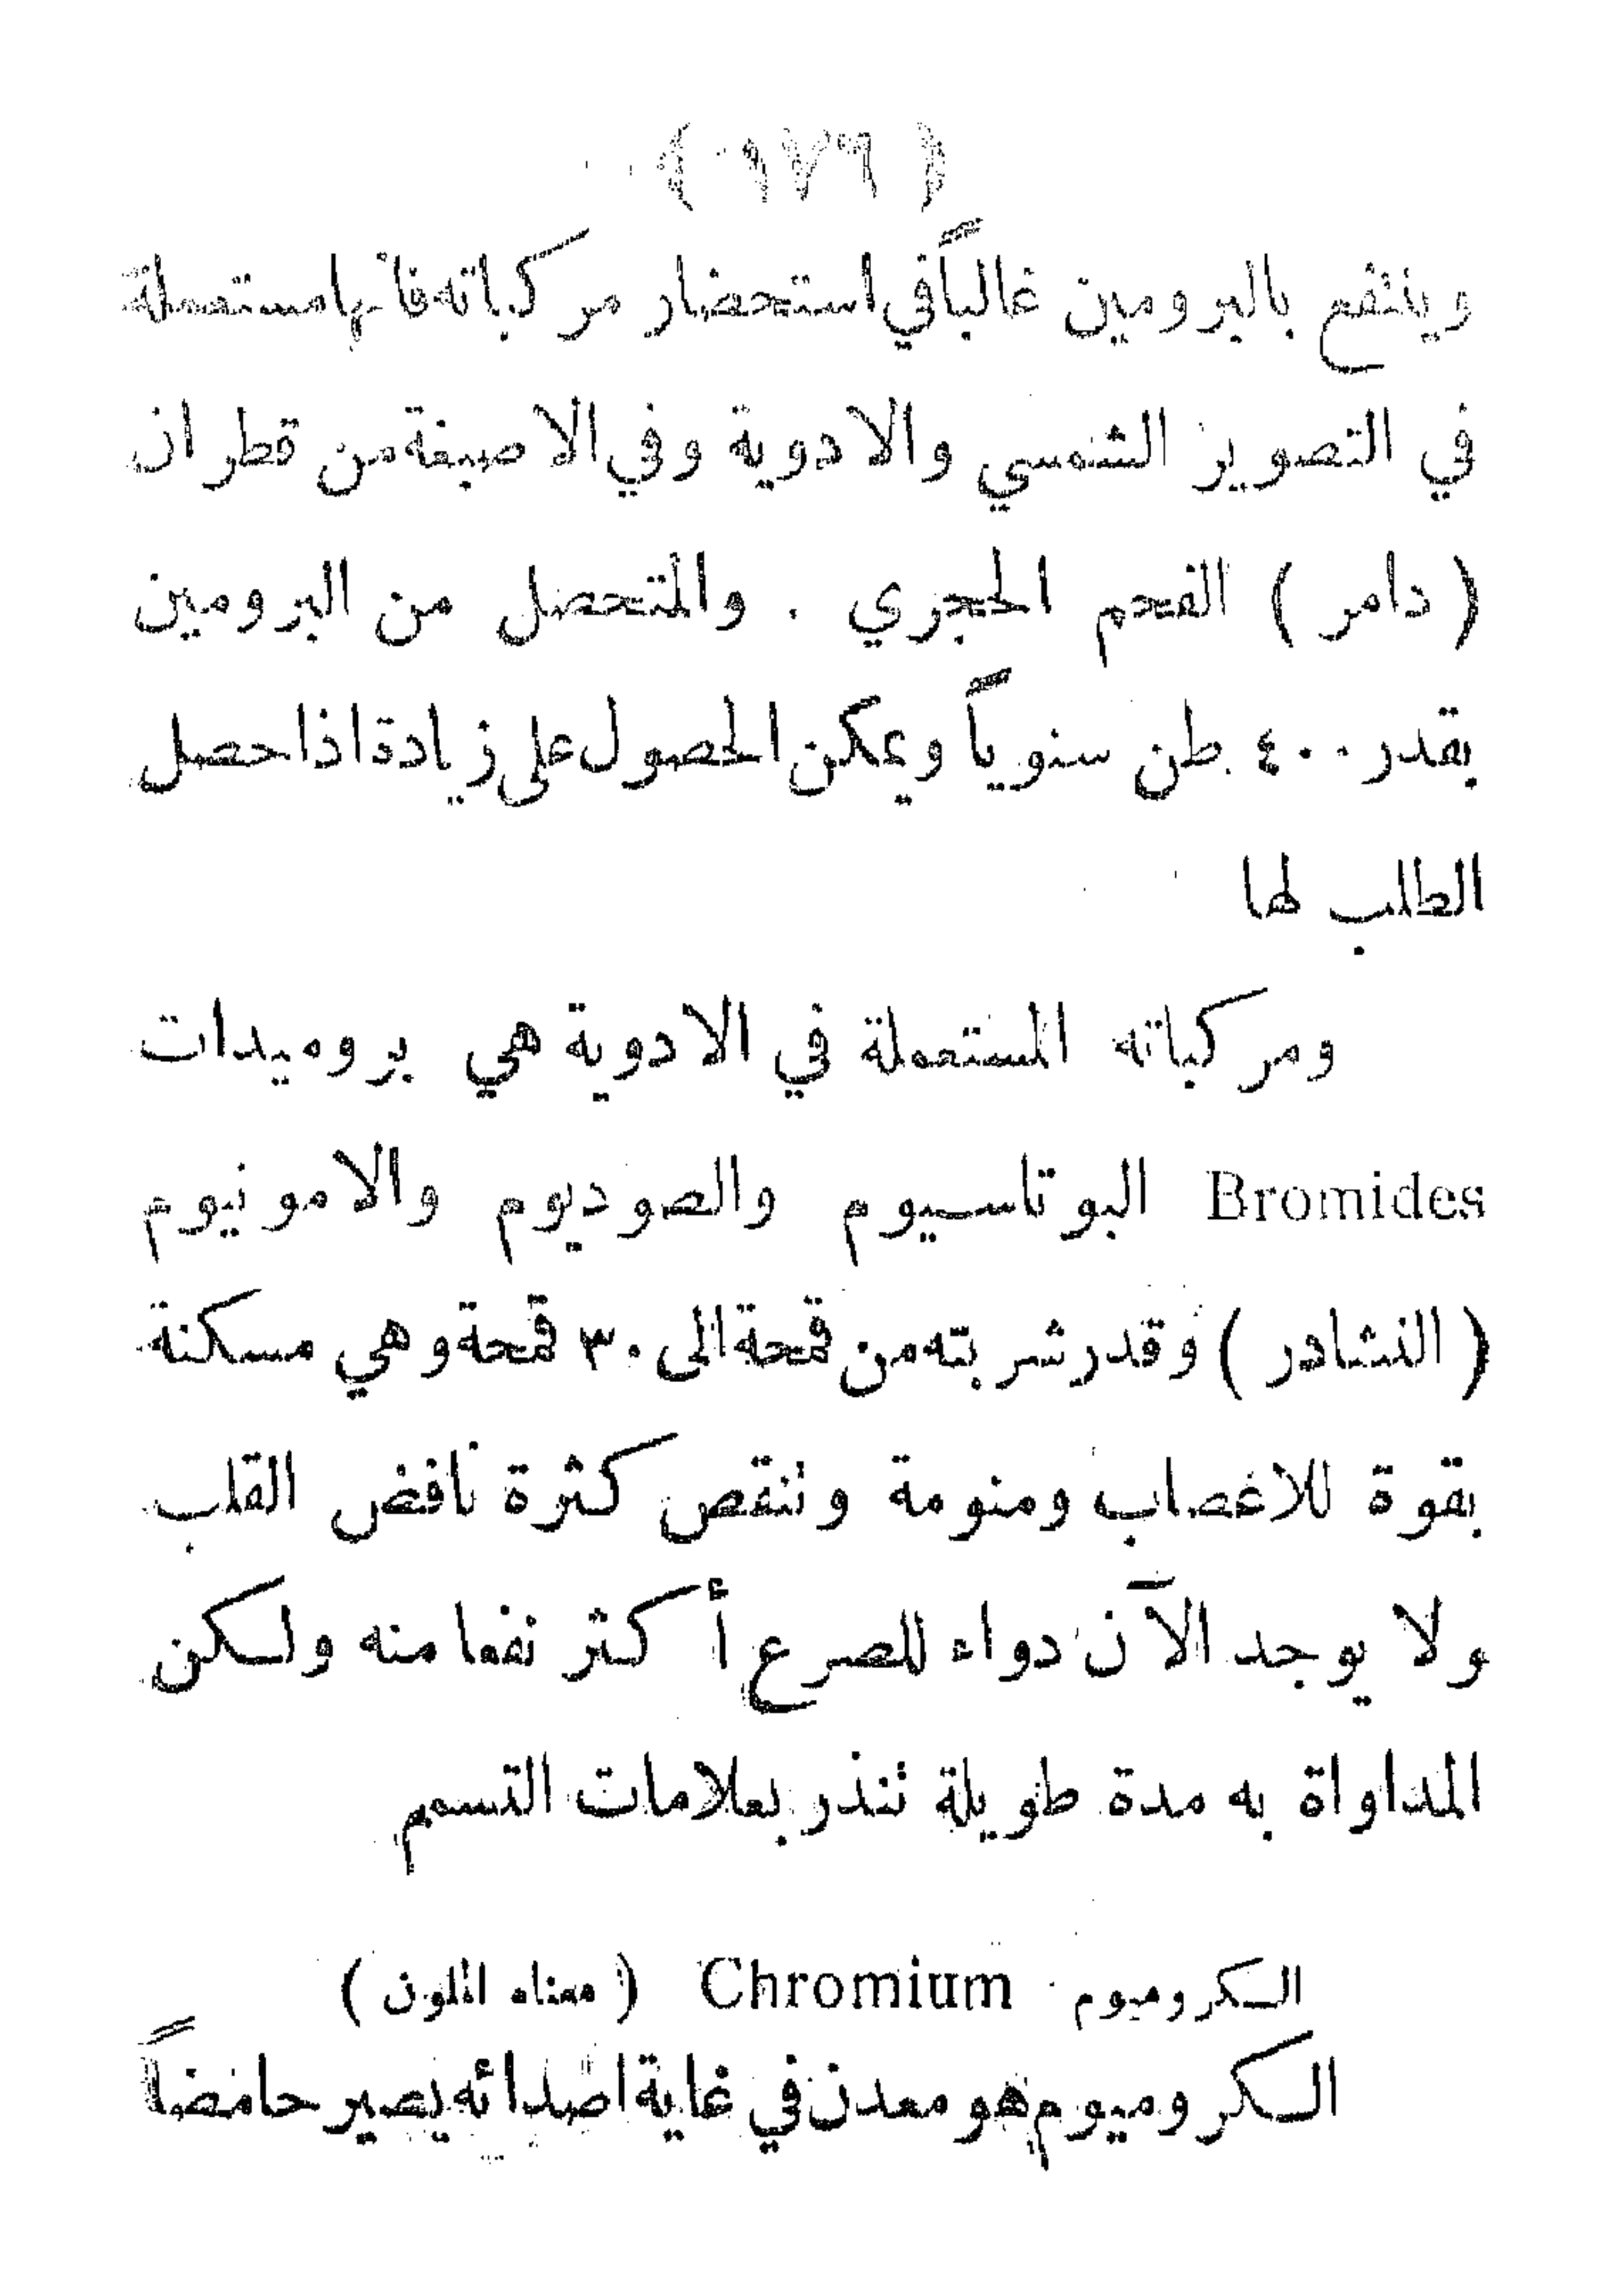 ( ٩٧٦ )
وينتفع بالبرومين غالباً في استحضار مركباته فانها مستعملة
في التصوير الشمسي والادوية وفي الاصبغة من قطران
( دامر ) الفحم الحجري . والمتحصل من البرومين
بقدر ٤٠٠ طن سنوياً ويمكن الحصول على زيادة اذا حصل
الطلب لها
ومركباته المستعملة في الادوية هي بروميدات
Bromides البوتاسيوم والصوديوم والامونيوم
( النشادر ) وقدر شربته من قمحة الى ٣٠ قمحة وهي مسكنة
بقوة للاعصاب ومنومة وتنقص كثرة نافض القلب
ولا يوجد الآن دواء للصرع أكثر نفعا منه ولكن
المداواة به مدة طويلة تنذر بعلامات التسمم
الكروميوم Chromium ( معناه الملون )
الكروميوم هو معدن في غاية اصدائه يصير حامضاً